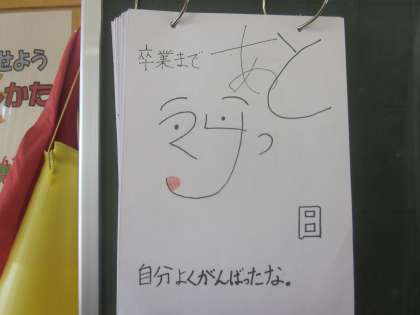 卒業まで あと
日
自分よくがんばったな。
せよう
かた